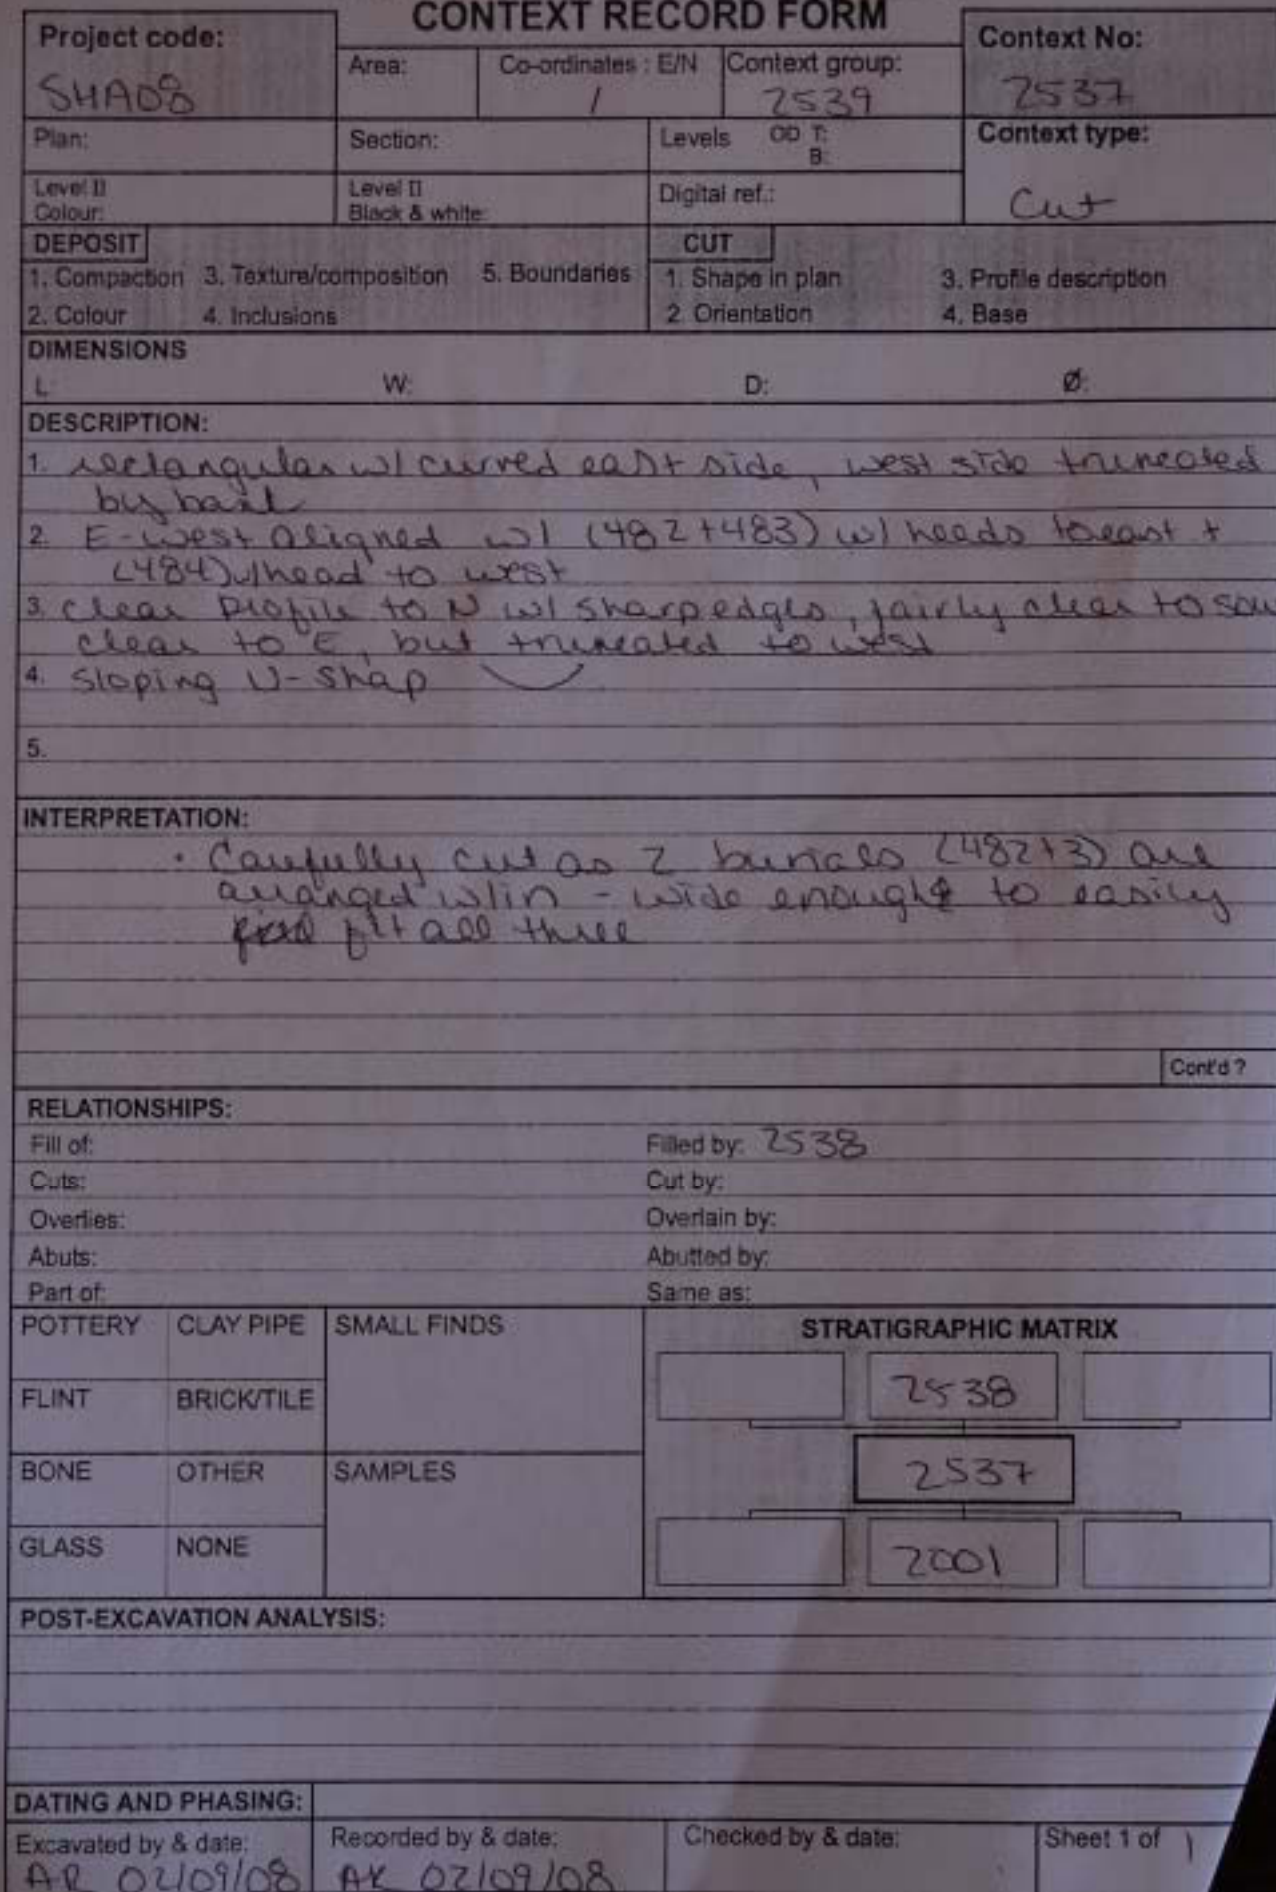 CONTEXT RECORD FORM
Project code:
SHA08
Area:
Co-ordinates : E/N
/
Context group:
2539
Context No:
2537
Plan:
Section:
Levels OD T:
B:
Context type:
Cut
Level II
Colour:
Level II
Black & white:
Digital ref.:
DEPOSIT
1. Compaction 3. Texture/composition 5. Boundaries
2. Colour 4. Inclusions
CUT
1. Shape in plan 3. Profile description
2. Orientation 4. Base
DIMENSIONS
L: W: D: Ø:
DESCRIPTION:
1. rectangular w/ curved east side, west side truncated
by
2. E-west aligned w/ (482+483) w/ heads to east +
(484) w/ head to west
3. clear profile to N w/ sharp edges, fairly clear to sou
clear to E, but truncated to west
4. sloping U-shap
5.
INTERPRETATION:
• Carefully cut as 2 burials (482+3) are
arranged w/in - wide enough to easily
fit all three
Cont'd ?
RELATIONSHIPS:
Fill of: Filled by: 2538
Cuts: Cut by:
Overlies: Overlain by:
Abuts: Abutted by:
Part of: Same as:
POTTERY CLAY PIPE SMALL FINDS
FLINT BRICK/TILE
BONE OTHER SAMPLES
GLASS NONE
STRATIGRAPHIC MATRIX
2538
2537
2001
POST-EXCAVATION ANALYSIS:
DATING AND PHASING:
Excavated by & date:
AR 02/09/08
Recorded by & date:
AK 02/09/08
Checked by & date:
Sheet 1 of 1